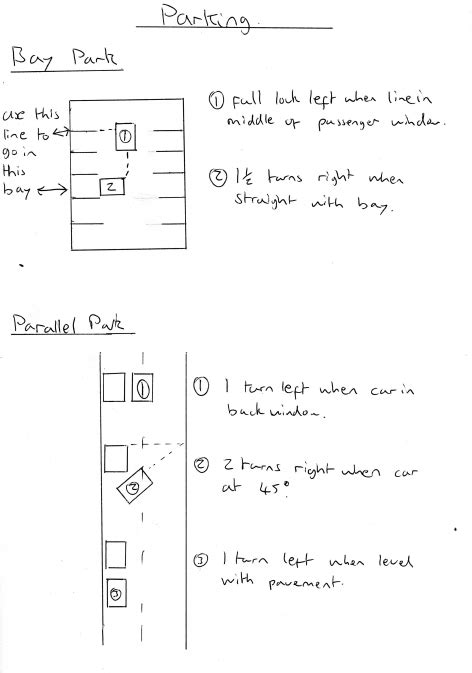 Parking.
Bay Park
use this
line to
go in
this
bay
1
2
① Full lock left when line in
middle of passenger window.
② 1½ turns right when
straight with bay.
Parallel Park
1
2
3
① 1 turn left when car in
back window.
② 2 turns right when car
at 45°.
③ 1 turn left when level
with pavement.